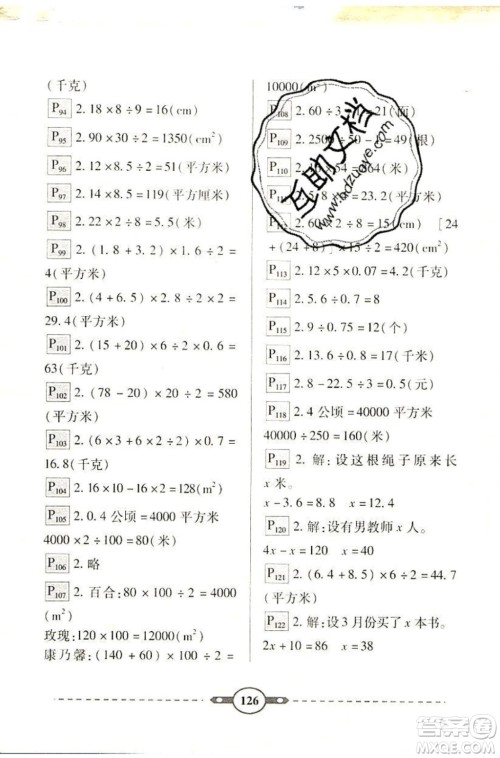 (千克)
P94 2. 18×8÷9=16(cm)
P95 2. 90×30÷2=1350(cm²)
P96 2. 12×8.5÷2=51(平方米)
P97 2. 14×8.5=119(平方厘米)
P98 2. 22×2÷8=5.5(米)
P99 2. (1.8+3.2)×1.6÷2=
4(平方米)
P100 2. (4+6.5)×2.8÷2×2=
29.4(平方米)
P101 2. (15+20)×6÷2×0.6=
63(千克)
P102 2. (78-20)×20÷2=580
(平方米)
P103 2. (6×3+6×2÷2)×0.7=
16.8(千克)
P104 2. 16×10-16×2=128(m²)
P105 2. 0.4公顷=4000平方米
4000×2÷100=80(米)
P106 2. 略
P107 2. 百合:80×100÷2=4000
(m²)
玫瑰:120×100=12000(m²)
康乃馨:(140+60)×100÷2=
10000(m²)
P108 2. 60÷3
21(面)
P109 2. 2500÷50
=49(根)
P110 2.
P112 2. 60
÷2÷8=15(cm) [24
+(24+8)]×15÷2=420(cm²)
P113 2. 12×5×0.07=4.2(千克)
P114 2. 5.6÷0.7=8
P115 2. 9÷0.75=12(个)
P116 2. 1.7×5×2=17(千米)
P117 2. 8-22.5÷9=5.5(元)
P118 2. 4公顷=40000平方米
40000÷250=160(米)
P119 2. 解:设这根绳子原来长
x米。
x-3.6=8.8 x=12.4
P120 2. 解:设有男教师x人。
4x-x=120 x=40
P121 2. (6.4+8.5)×6÷2=44.7
(平方米)
P122 2. 解:设3月份买了x本书。
2x+10=86 x=38
126
互助文档
www.bdzuoye.com
答案圈
MXQE.COM